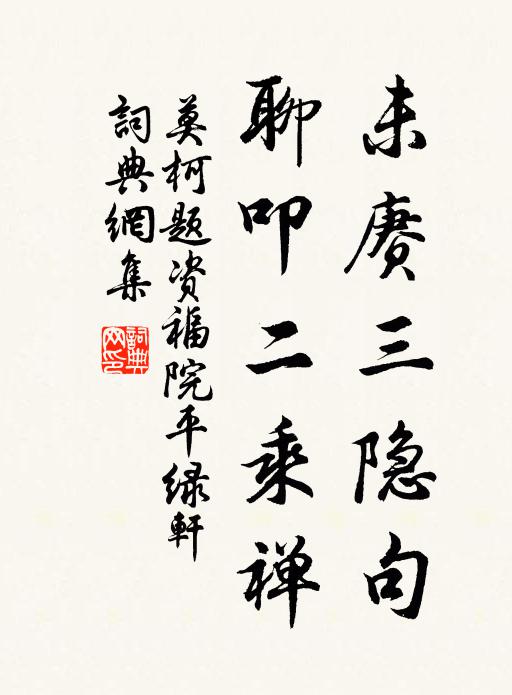 未赓三隐句
聊叩二乘禅
莫柯题资福院平绿軒
詞典網集
詞典网印